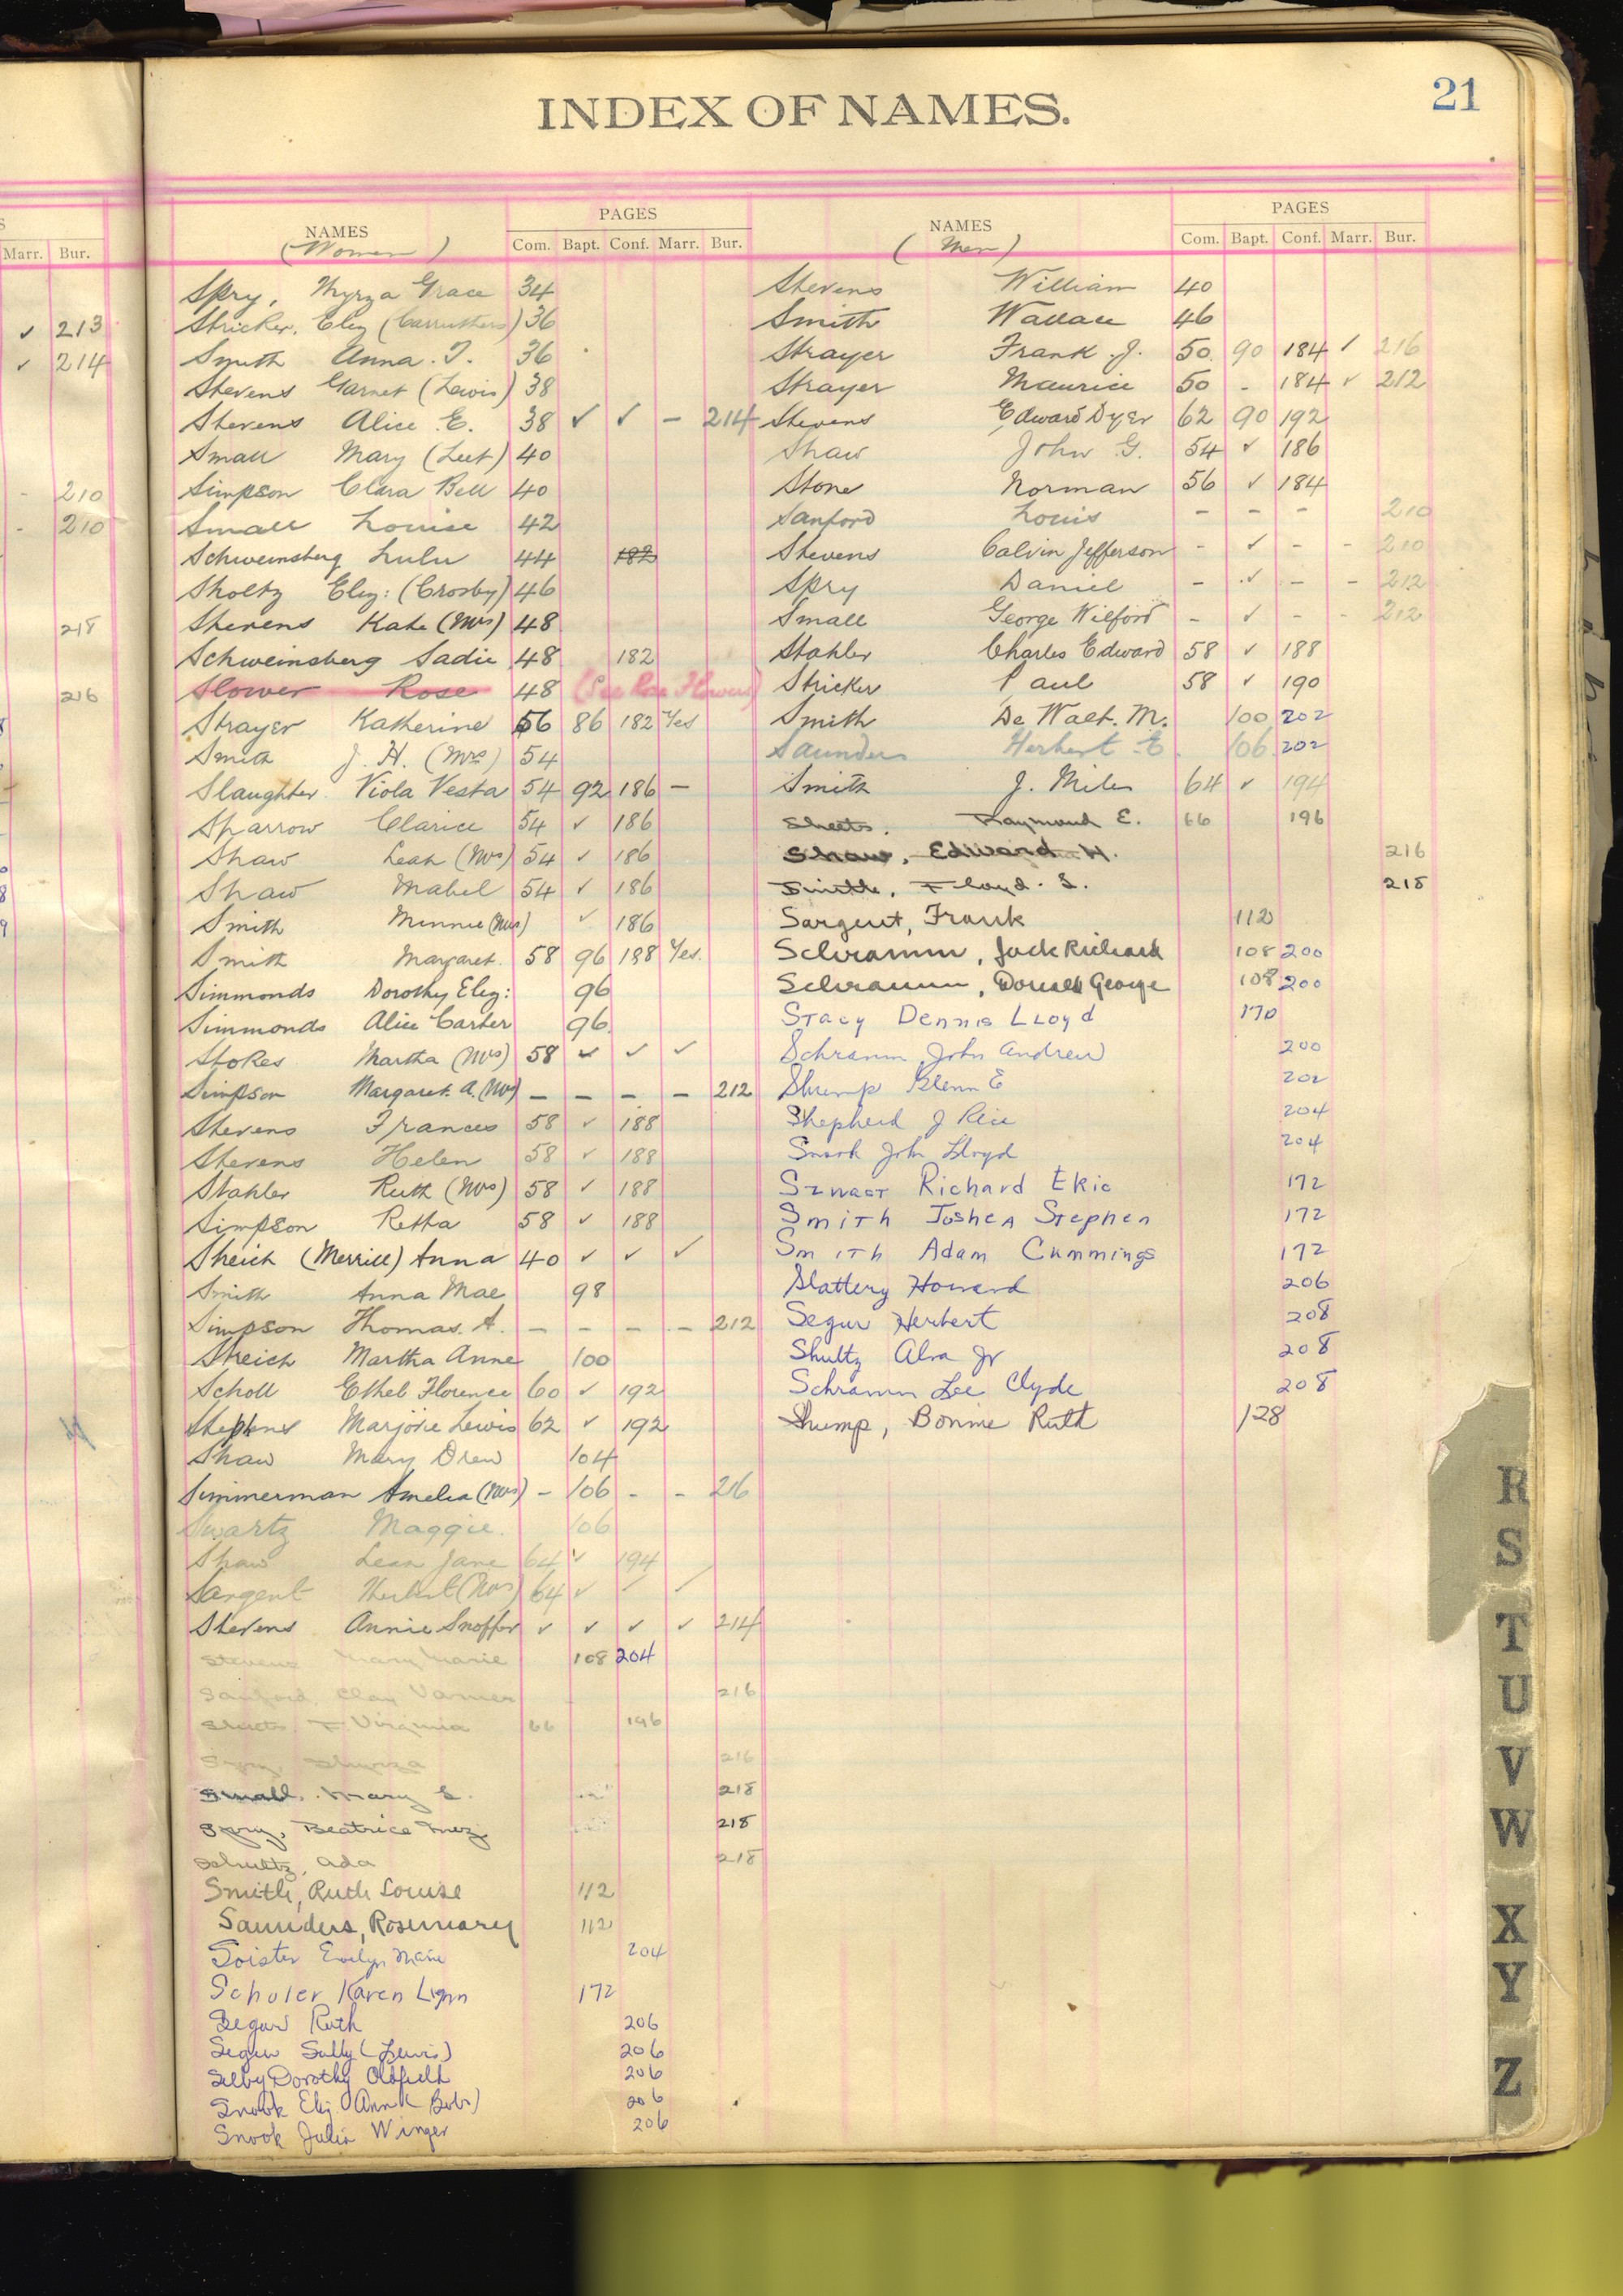 21
INDEX OF NAMES.
S
Marr. Bur.
✓ 213
✓ 214
- 210
- 210
218
216
NAMES
(Women)
PAGES
Com. Bapt. Conf. Marr. Bur.
Spry, Thyrza Grace 34
Stricker, Eliz (Carruthers) 36
Smith Anna. T. 36
Stevens Garnet (Lewis) 38
Stevens Alice E. 38 ✓ ✓ - 214
Small Mary (Leet) 40
Simpson Clara Bell 40
Small Louise 42
Schweinsberg Lulu 44 182
Sholtz Eliz: (Crosby) 46
Stevens Kate (Mrs) 48
Schweinsberg Sadie 48 182
Slower Rose 48 (See Rose Flowers)
Strayer Katherine 56 86 182 Yes
Smith J. H. (Mrs) 54
Slaughter Viola Vesta 54 92 186 -
Sparrow Clarice 54 ✓ 186
Shaw Leah (Mrs) 54 ✓ 186
Shaw Mabel 54 ✓ 186
Smith Minnie (Mrs) ✓ 186
Smith Margaret. 58 96 188 Yes.
Simmonds Dorothy Eliz: 96
Simmonds Alice Carter 96
Stokes Martha (Mrs) 58 ✓ ✓ ✓
Simpson Margaret. A. (Mrs) - - - - 212
Stevens Frances 58 ✓ 188
Stevens Helen 58 ✓ 188
Stahler Ruth (Mrs) 58 ✓ 188
Simpson Retha 58 ✓ 188
Streich (Merrill) Anna 40 ✓ ✓ ✓
Smith Anna Mae 98
Simpson Thomas. A. - - - - 212
Streich Martha Anne 100
Scholl Ethel Florence 60 ✓ 192
Stephens Marjorie Lewis 62 ✓ 192
Shaw Mary Drew 104
Simmerman Amelia (Mrs) - 106 - - 216
Swartz Maggie. 106
Shaw Leah Jane 64 ✓ 194
Sargent Herbert (Mrs) 64 ✓ ✓ ✓
Stevens Annie Snoffer ✓ ✓ ✓ ✓ 214
Stevens Mary Marie 108 204
Sanford, Clay Varner 216
Sheets, F Virginia 66 196
Spry, Thurza 216
Small, Mary E. 218
Spry, Beatrice Inez 218
Schultz, Ada 218
Smith, Ruth Louise 112
Saunders, Rosemary 112
Soister Evelyn Marie 204
Schuler Karen Lynn 172
Segur Ruth 206
Segur Sally (Lewis) 206
Selby Dorothy Oldfield 206
Snook Eliz Ann (Bobs) 206
Snook Julia Winger 206
NAMES
(Men)
PAGES
Com. Bapt. Conf. Marr. Bur.
Stevens William 40
Smith Wallace 46
Strayer Frank. J. 50. 90 184 ✓ 216
Strayer Maurice 50 - 184 ✓ 212
Stevens Edward Dyer 62 90 192
Shaw John G. 54 ✓ 186
Stone Norman 56 ✓ 184
Sanford Louis - - - 210
Stevens Calvin Jefferson - ✓ - - 210
Spry Daniel - ✓ - - 212
Small George Wilford - ✓ - - 212
Stahler Charles Edward 58 ✓ 188
Stricker Paul 58 ✓ 190
Smith De Walt. M. 100 202
Saunders Herbert E. 106 202
Smith J. Miles 64 ✓ 194
Sheets. Raymond E. 66 196
Shaw, Edward H. 216
Smith, Floyd. S. 218
Sargent, Frank 112
Schramm, Jack Richard 108 200
Schramm, Donald George 108 200
Stacy Dennis Lloyd 170
Schramm John Andrew 200
Shump Glenn E 202
Shepherd J Rice 204
Snook John Lloyd 204
Richard Eric 172
Smith Joshua Stephen 172
Smith Adam Cummings 172
Slattery Howard 206
Segur Herbert 208
Shultz Alva Jr 208
Schramm Lee Clyde 208
Shump, Bonnie Ruth 128
R
S
T
U
V
W
X
Y
Z